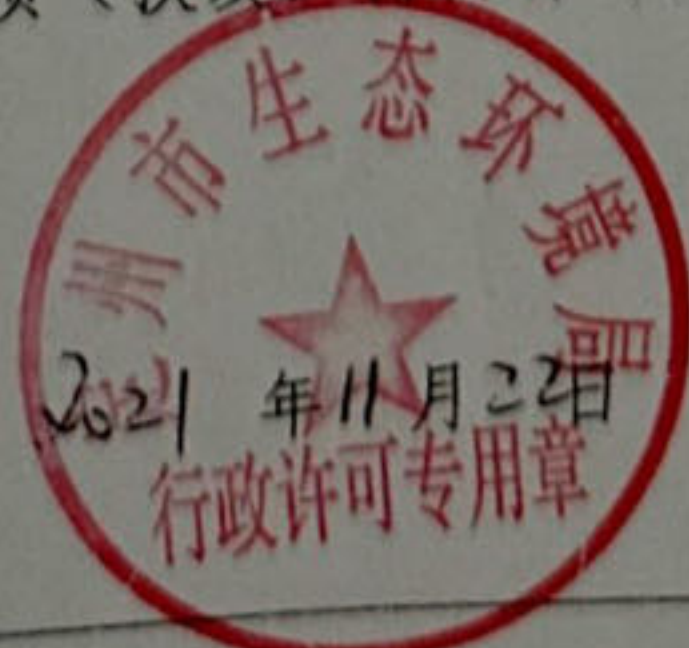 州市生态环境局
2021年11月22日
行政许可专用章